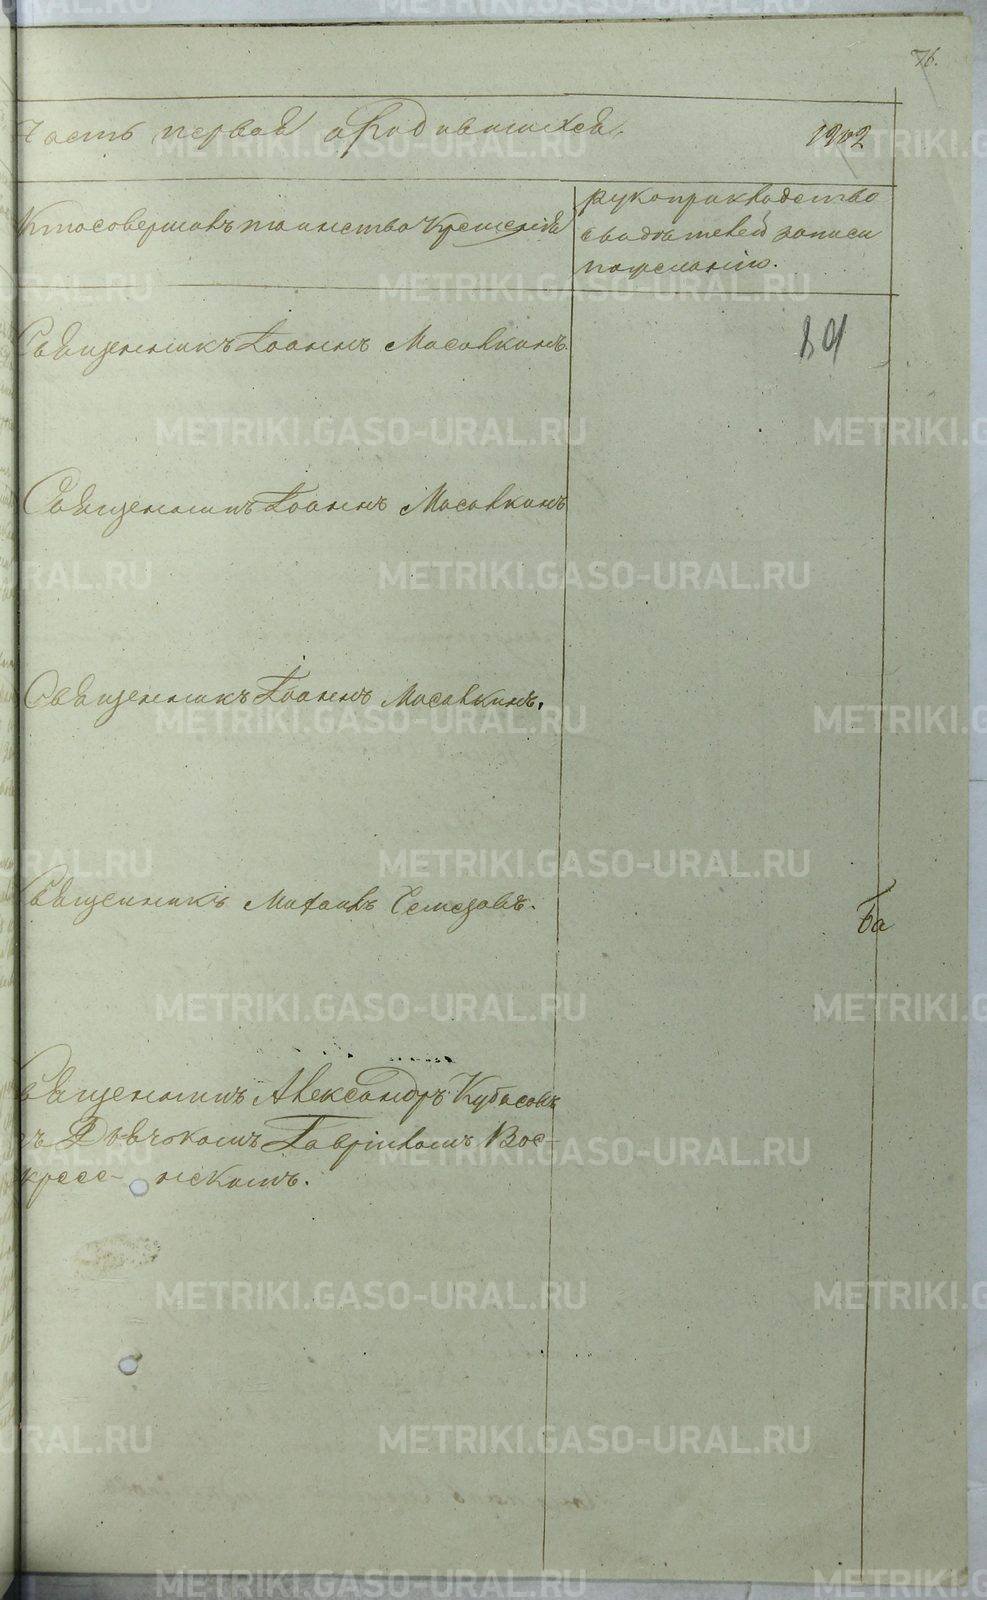 76.
Часть первая о родившихся.
1902
Кто совершалъ таинство крещенія
рукоприкладство
свидѣтелей записи
по желанію.
Священникъ Іоаннъ Масалкинъ.
Священникъ Іоаннъ Масалкинъ
Священникъ Іоаннъ Масалкинъ.
Священникъ Михаилъ
Ба
Священникъ Александръ Кубасовъ
съ Дьячкомъ Гавріиломъ Вос-
кресе- нскомъ.
METRIKI.GASO-URAL.RU